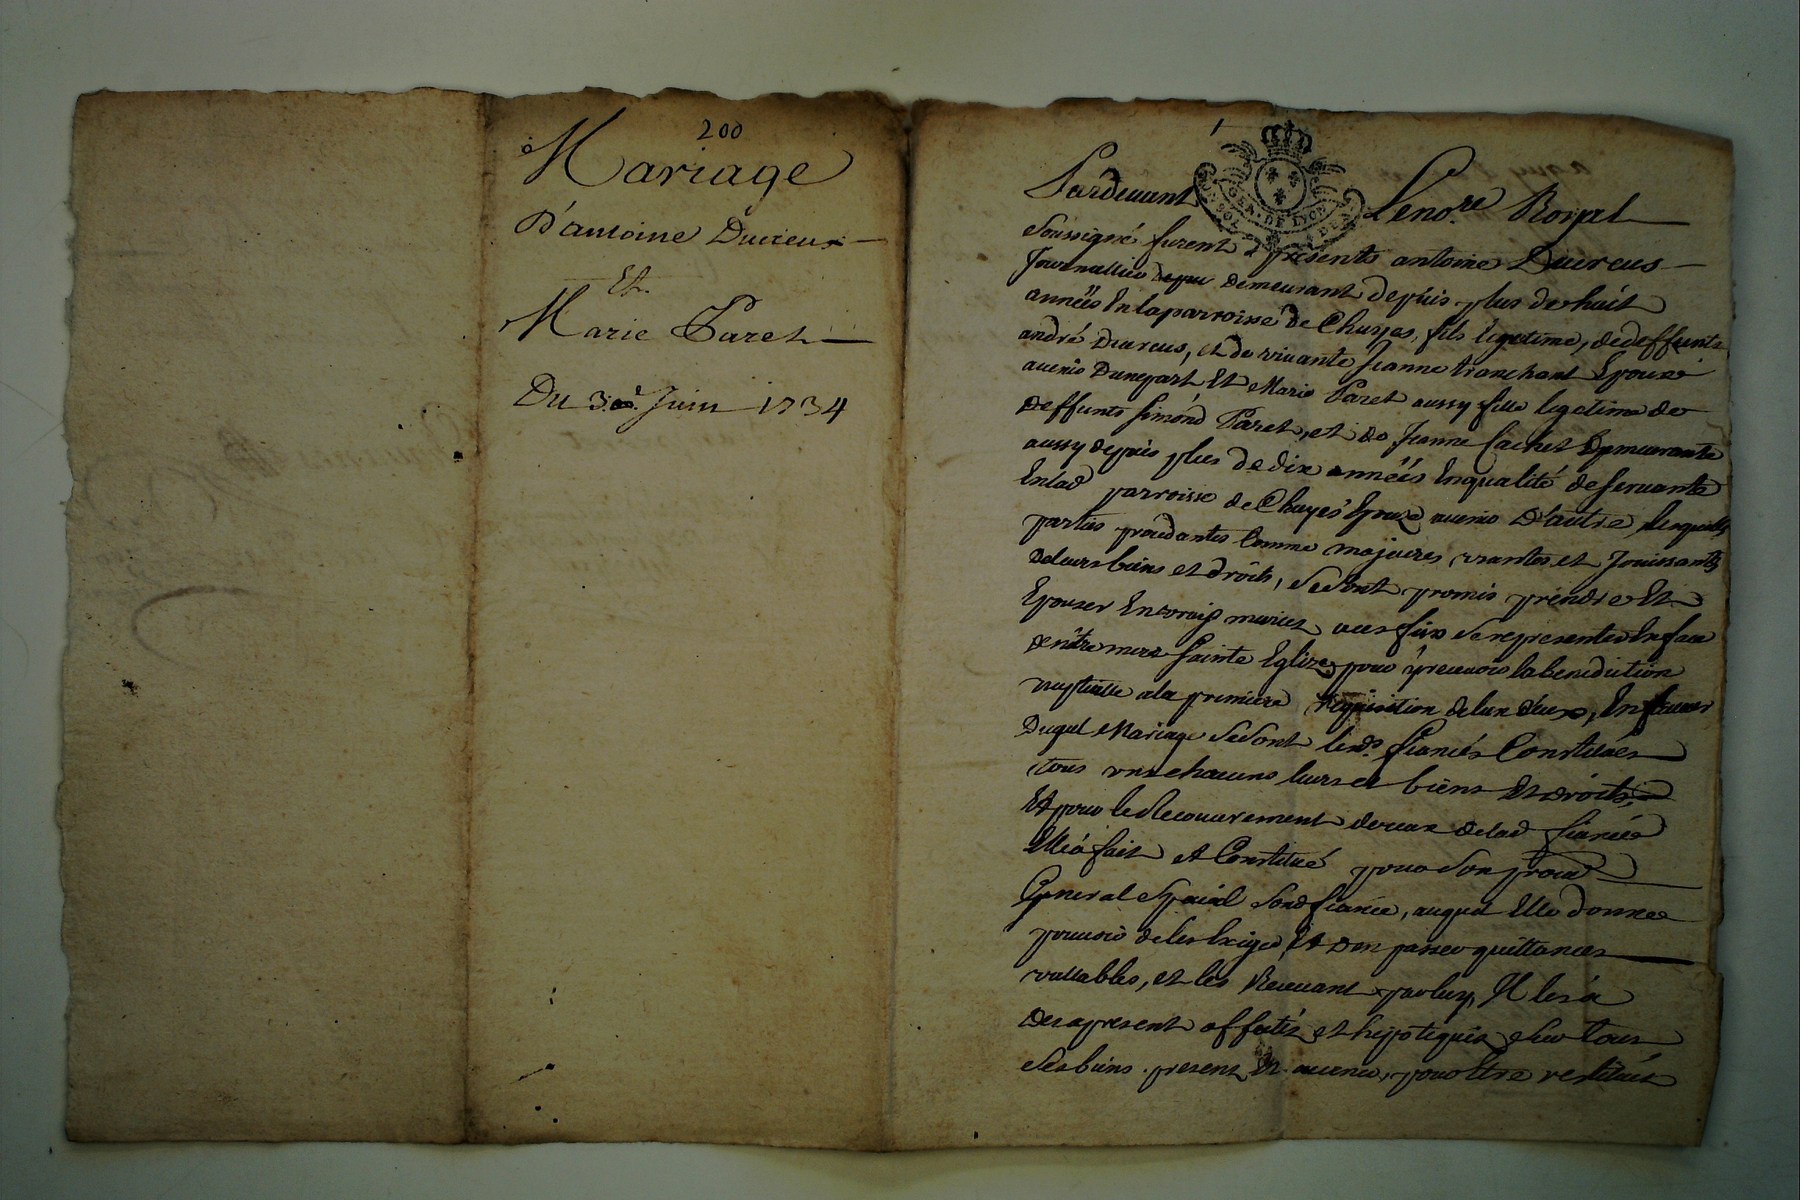 200
Mariage
D'antoine Ducreux
Et
Marie Paret
Du 30e Juin 1734
1
GEN. DE LYON
Pardevant Le no.re Royal
Soussigné furent présents antoine Ducreus
Journallier demeurant depuis plus de huit
années En la parroisse de Chuyes, fils legetime, de deffunts
andré Ducreus, et de vivante Jeanne tranchant Epoux
avenir Dunepart Et Marie Paret aussy fille legetime de
deffunts Simond Paret, et de Jeanne Cachet Demeurante
aussy depuis plus de dix années Enqualité de servante
Enlad parroisse de Chuyes Epouze avenir D'autre, lesquelles
parties procédantes Comme majeures, usantes et Jouissantes
deleurs biens et droits, se sont promis prendre Et
Epouser En vray mariez aux fins se representer En face
de nître mere Sainte Eglize, pour y recevoir la benediction
nuptialle a la premiere requisition de lun deux, En faveur
Duquel Mariage se sont lesds. fiancés Constitués
tous uns chacuns leurs et biens Et droits,
Et pour le Recouvrement de ceux de lad fiancée
Elle a fait et Constitué pour son procur
General espécial sond fiancé, auquel Elle donne
pouvoir de les Exiger, Et den passer quittances
vallables, et les Recevant par luy, Il les a
des apresent affectés et hipotequés sur tous
ses biens present Et avenir, pour être restitués